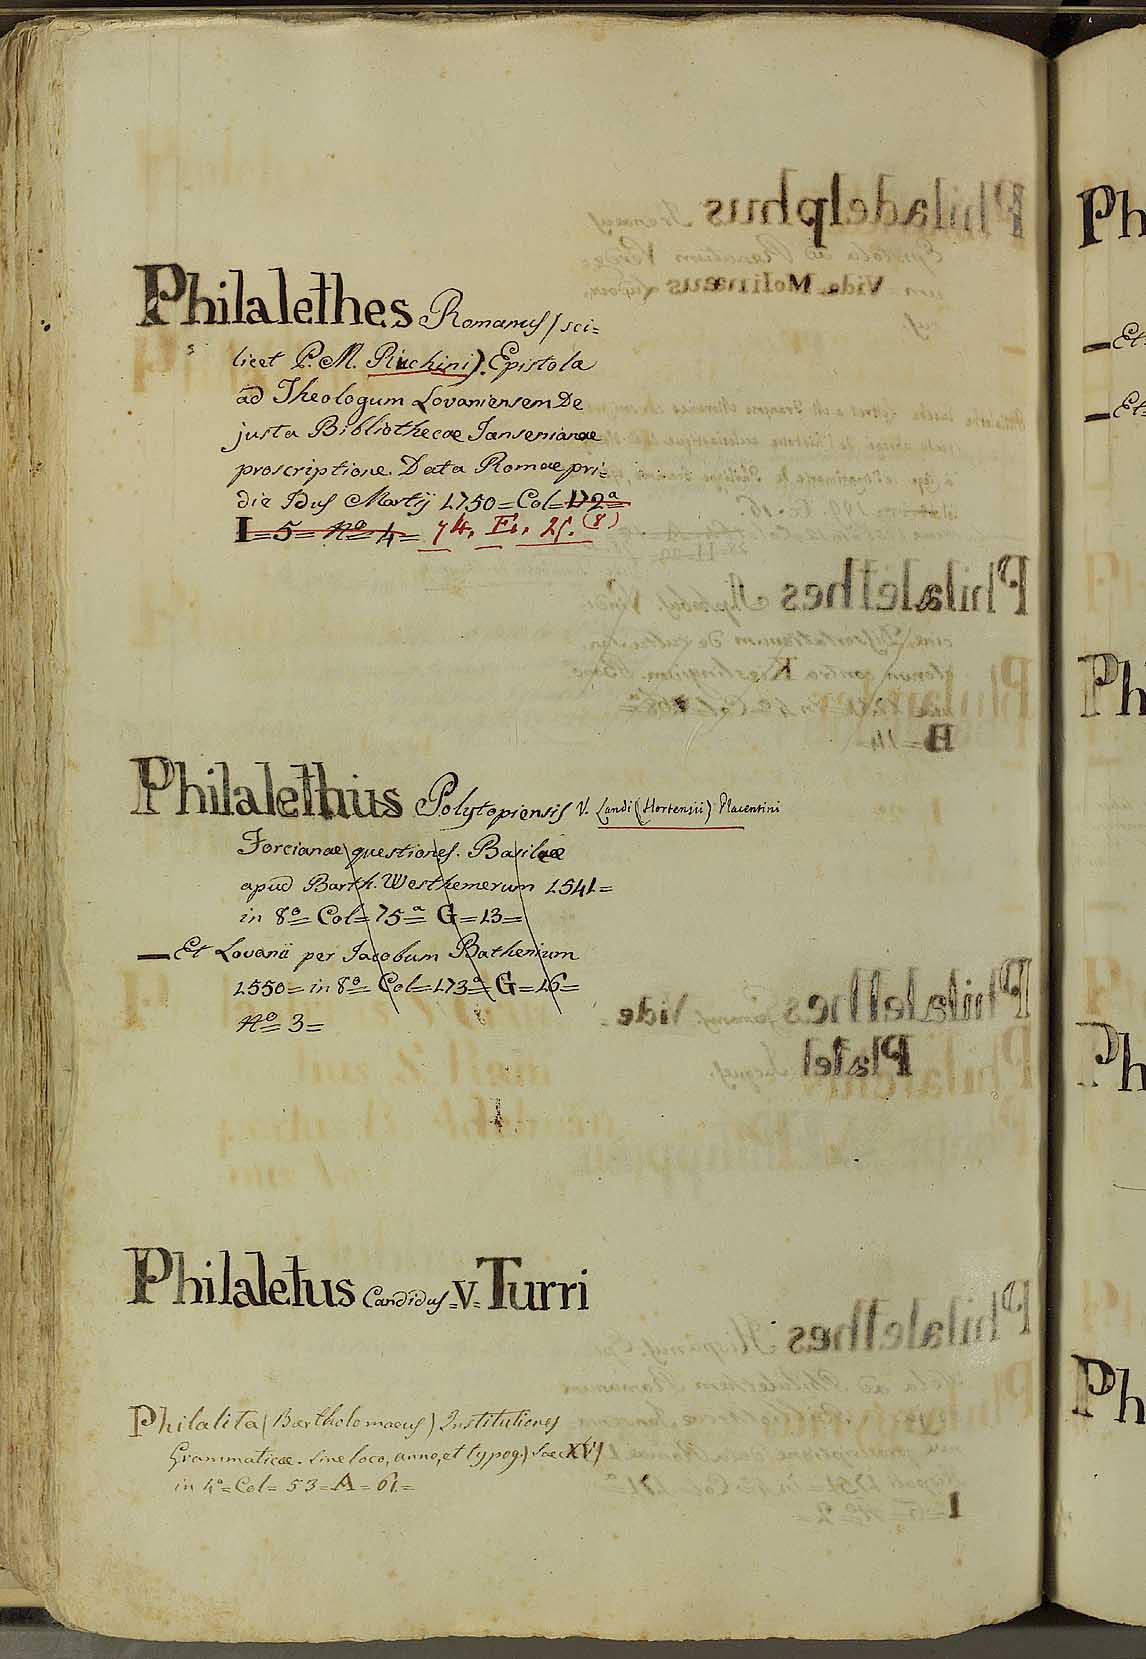 Philalethes Romanus / sci=
licet P. M. Richini). Epistola
ad Theologum Lovaniensem De
justa Bibliothecae Jansenianae
proscriptione. Data Romae pri=
die Idus Martij 1750 = Col = 172ª
I = 5 = Nº 4 = 74. E. 25. (8)
Philalethius Polytopiensis V. Landi (Hortensii) Placentini
Forcianae questiones. Basileae
apud Barth. Westhemerum 1541 =
in 8º = Col = 75ª = G = 13 =
— Et Lovanii per Jacobum Bathenium
1550 = in 8º = Col = 173ª = G = 16 =
Nº 3 =
Philaletus Candidus = V. = Turri
Philalita (Bartholomaeus) Institutiones
Grammaticae. Sine loco, anno, et typog.) Saec XVI
in 4º = Col = 53 = A = 61. =
Ph
— Et
— Et
Ph
Ph
Ph